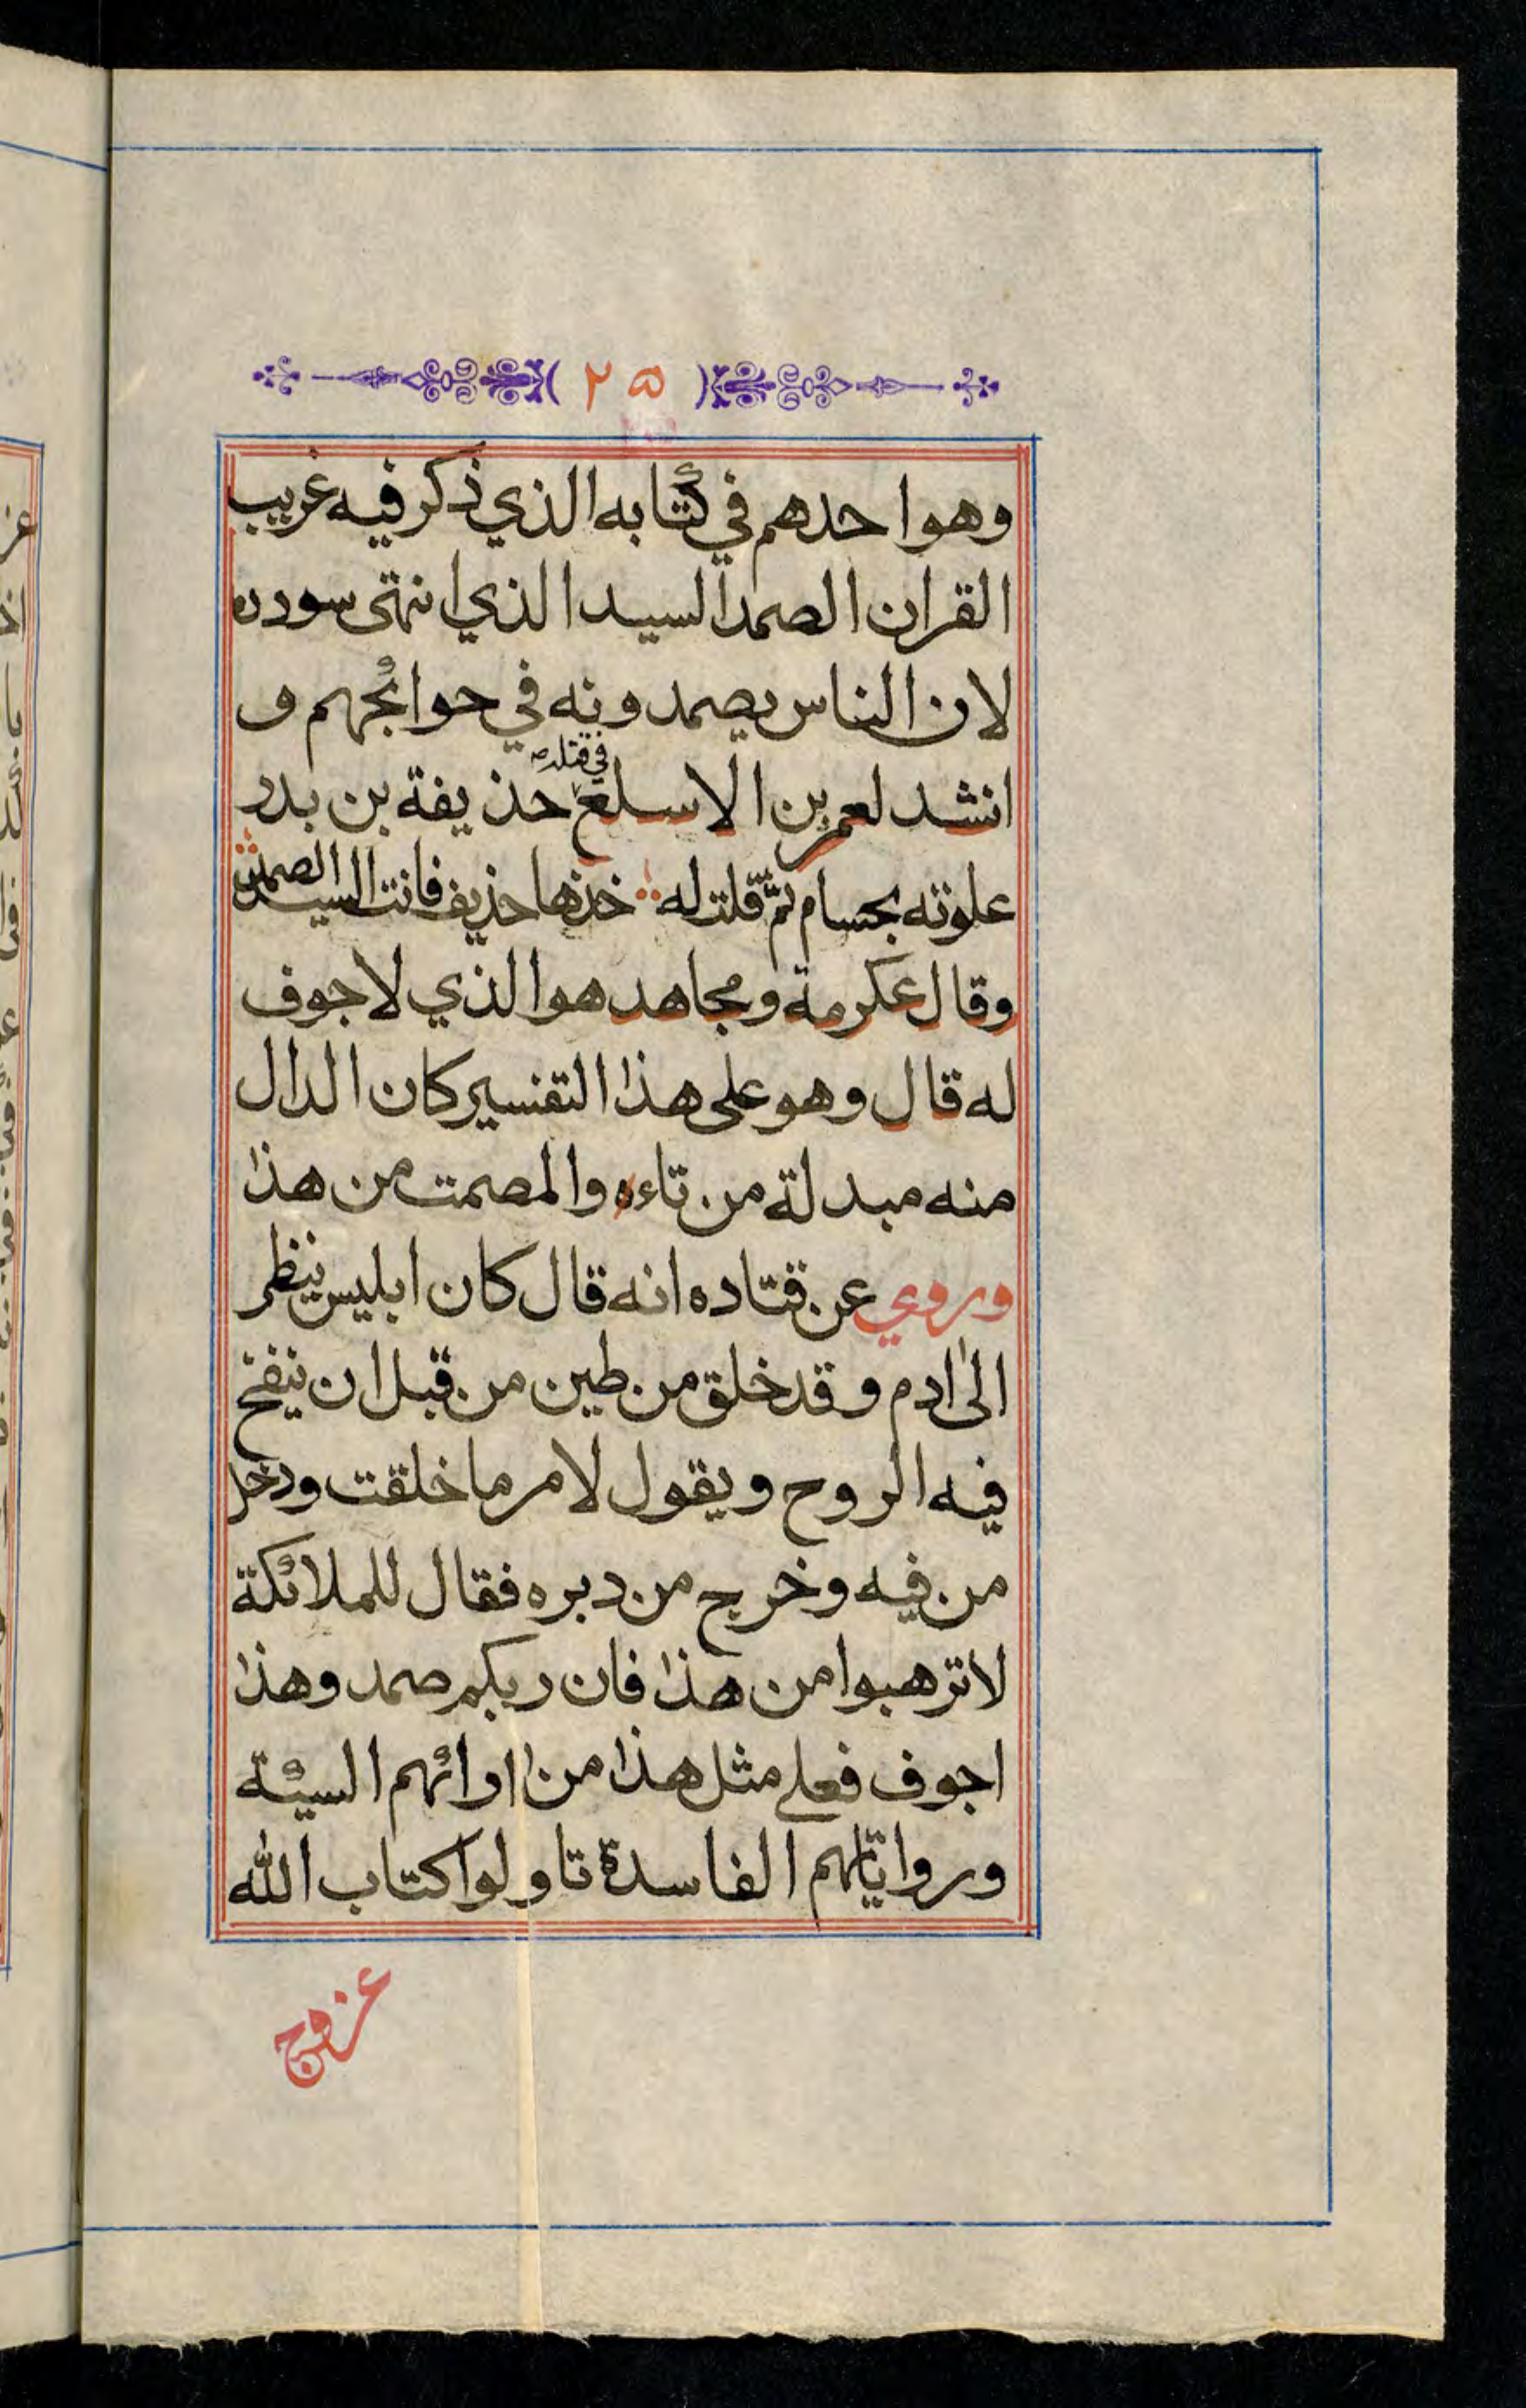 ( ٢٥ )
وهو احدهم في كتابه الذي ذكر فيه غريب
القران الصمد السيد الذي انتهى سودده
لان الناس يصمدونه في حوائجهم و
انشد لعمر بن الاسلع في قتله حذيفة بن بدر
علوته بحسام ثم قلت له خذها حذيف فانت السيد الصمد
وقال عكرمة ومجاهد هو الذي لا جوف
له قال وهو على هذا التفسير كان الدال
منه مبدلة من تاءه والمصمت من هذا
وروي عن قتاده انه قال كان ابليس ينظر
الى ادم وقد خلق من طين من قبل ان ينفخ
فيه الروح ويقول لامر ما خلقت ودخل
من فيه وخرج من دبره فقال للملائكة
لا ترهبوا من هذا فان ربكم صمد وهذا
اجوف فعلى مثل هذا من ارائهم السيئة
ورواياتهم الفاسدة تاولوا كتاب الله
عزوج